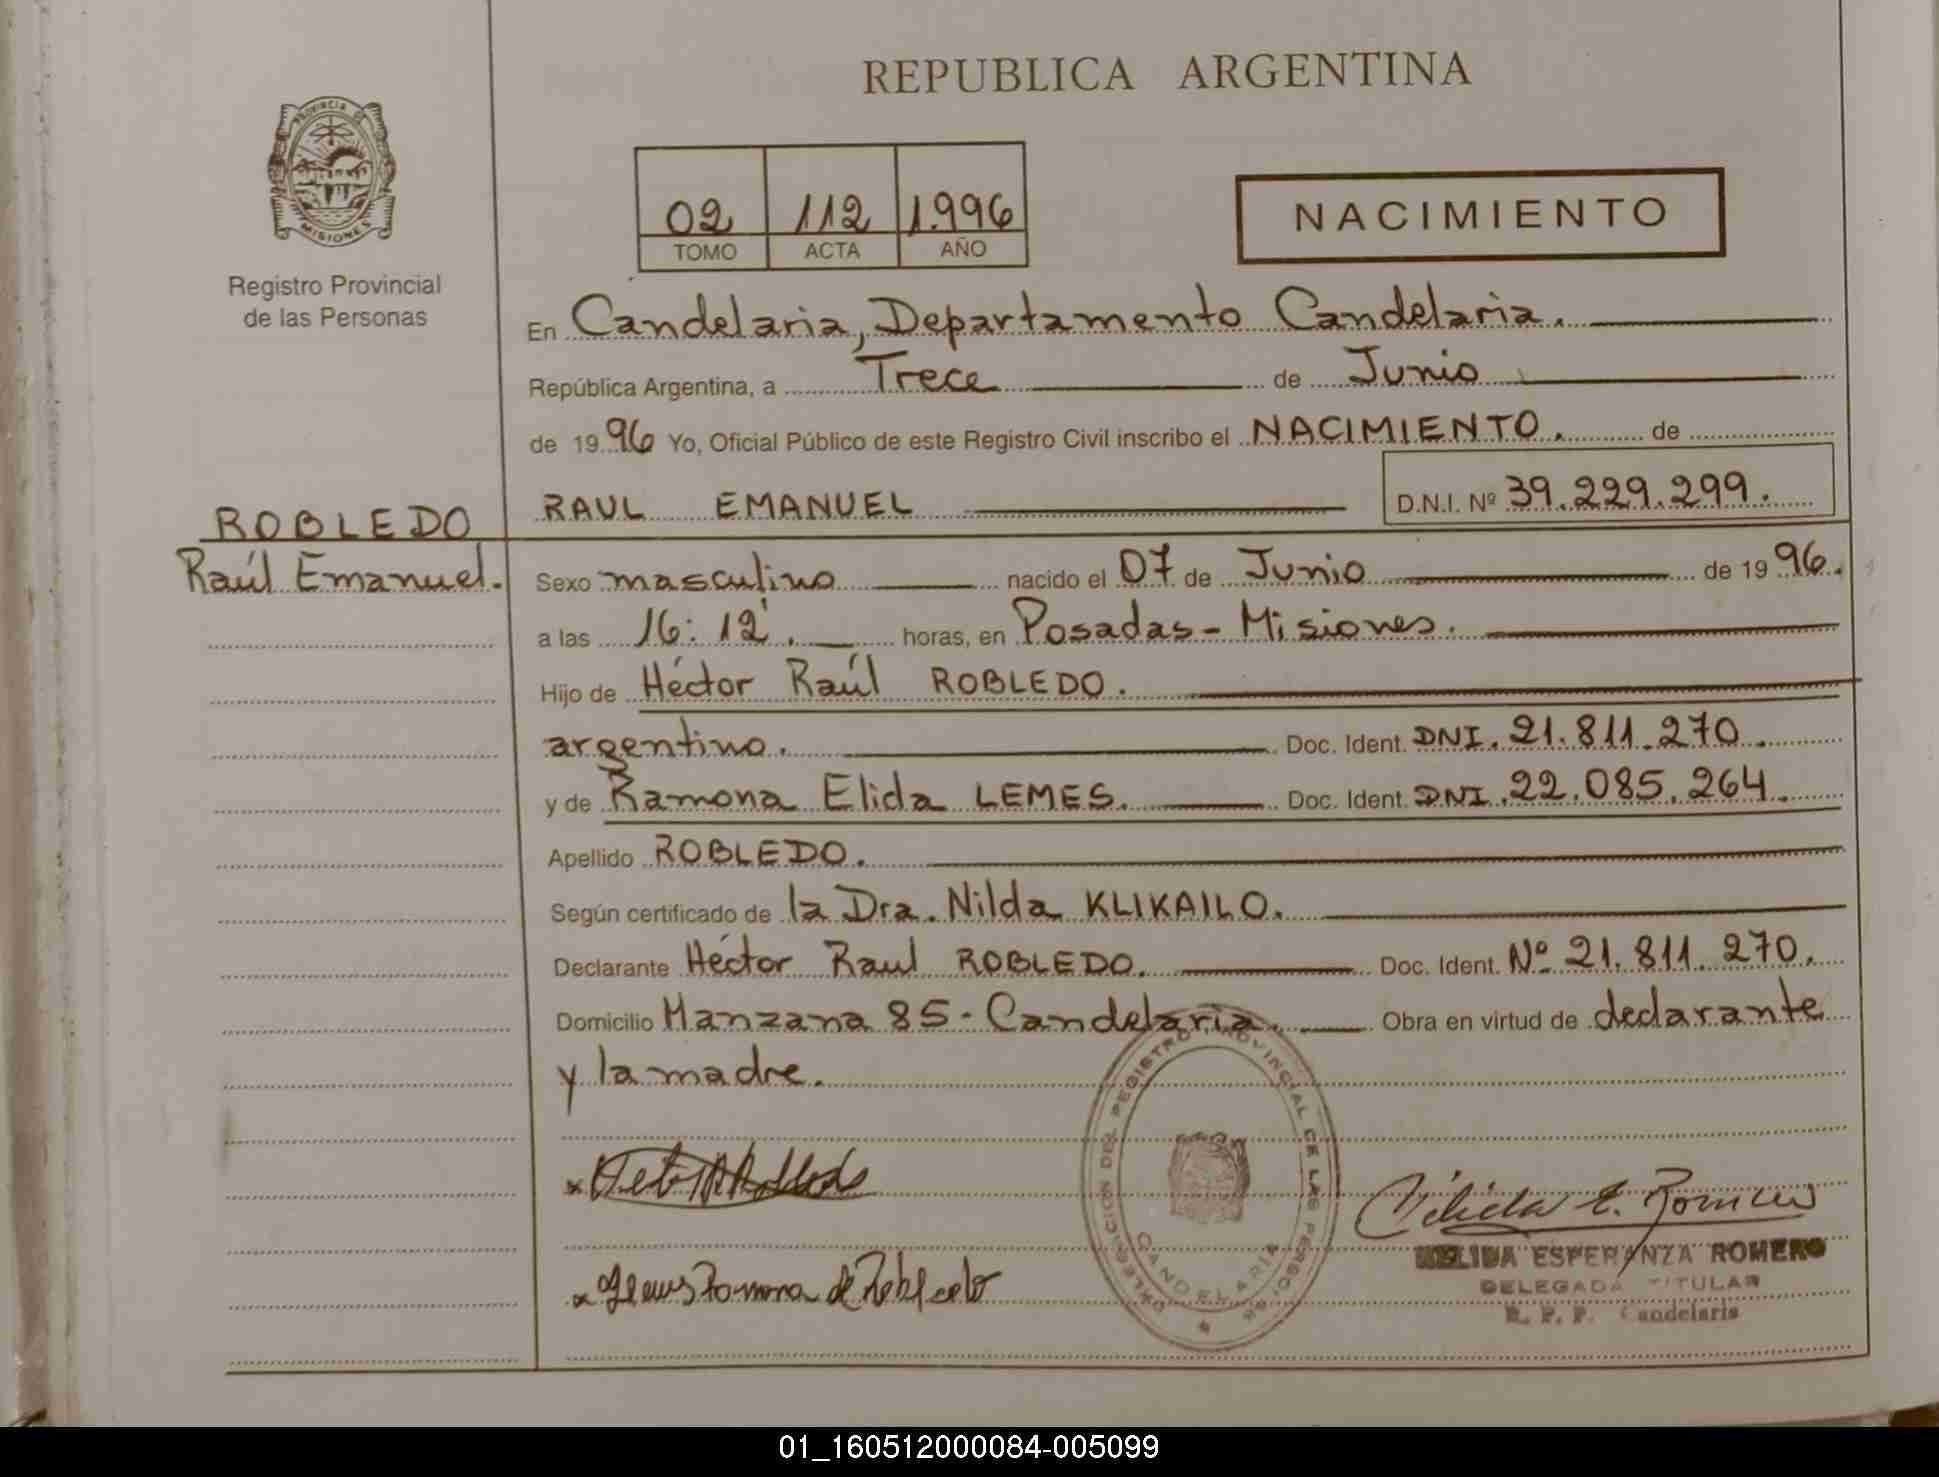 REPUBLICA ARGENTINA
PROVINCIA DE
MISIONES
Registro Provincial
de las Personas
02 112 1.996
TOMO ACTA AÑO
NACIMIENTO
En Candelaria, Departamento Candelaria.
República Argentina, a Trece de Junio
de 1996 Yo, Oficial Público de este Registro Civil inscribo el NACIMIENTO. de
RAUL EMANUEL D.N.I. Nº 39.229.299.
ROBLEDO
Raúl Emanuel.
Sexo masculino nacido el 07 de Junio de 1996.
a las 16:12'. horas, en Posadas - Misiones.
Hijo de Héctor Raúl ROBLEDO.
argentino. Doc. Ident. DNI. 21.811.270.
y de Ramona Elida LEMES. Doc. Ident. DNI. 22.085.264.
Apellido ROBLEDO.
Según certificado de la Dra. Nilda KLIKAILO.
Declarante Héctor Raul ROBLEDO. Doc. Ident. Nº 21.811.270.
Domicilio Manzana 85 - Candelaria. Obra en virtud de declarante
y la madre.
DELEGACION DEL REGISTRO PROVINCIAL DE LAS PERSONAS
CANDELARIA
x Lemes Ramona de Robledo
ESPERANZA ROMERO
DELEGADA TITULAR
R. P. P. Candelaria
01_160512000084-005099